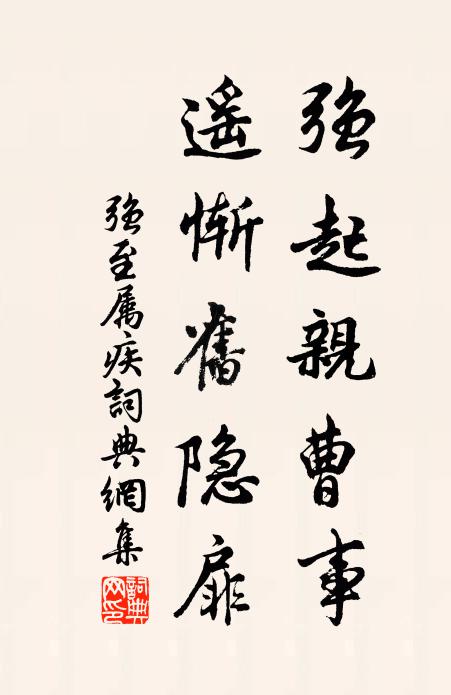 强起親曹事
遥惭舊隐扉
强至属疾詞典網集
詞典网印